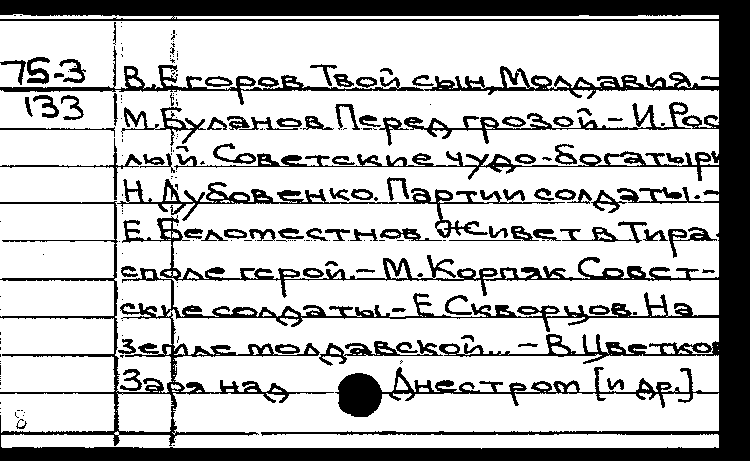 75-3
133
В. Егоров. Твой сын, Молдавия.-
М. Буланов. Перед грозой.- И. Рос
лый. Советские чудо-богатыри
Н. Дубовенко. Партии солдаты.-
Е. Беломестнов. Живет в Тира-
споле герой.- М. Корпяк. Совет-
ские солдаты.- Е Скворцов. На
земле молдавской...- В. Цветков
Заря над Днестром [и др.].
8